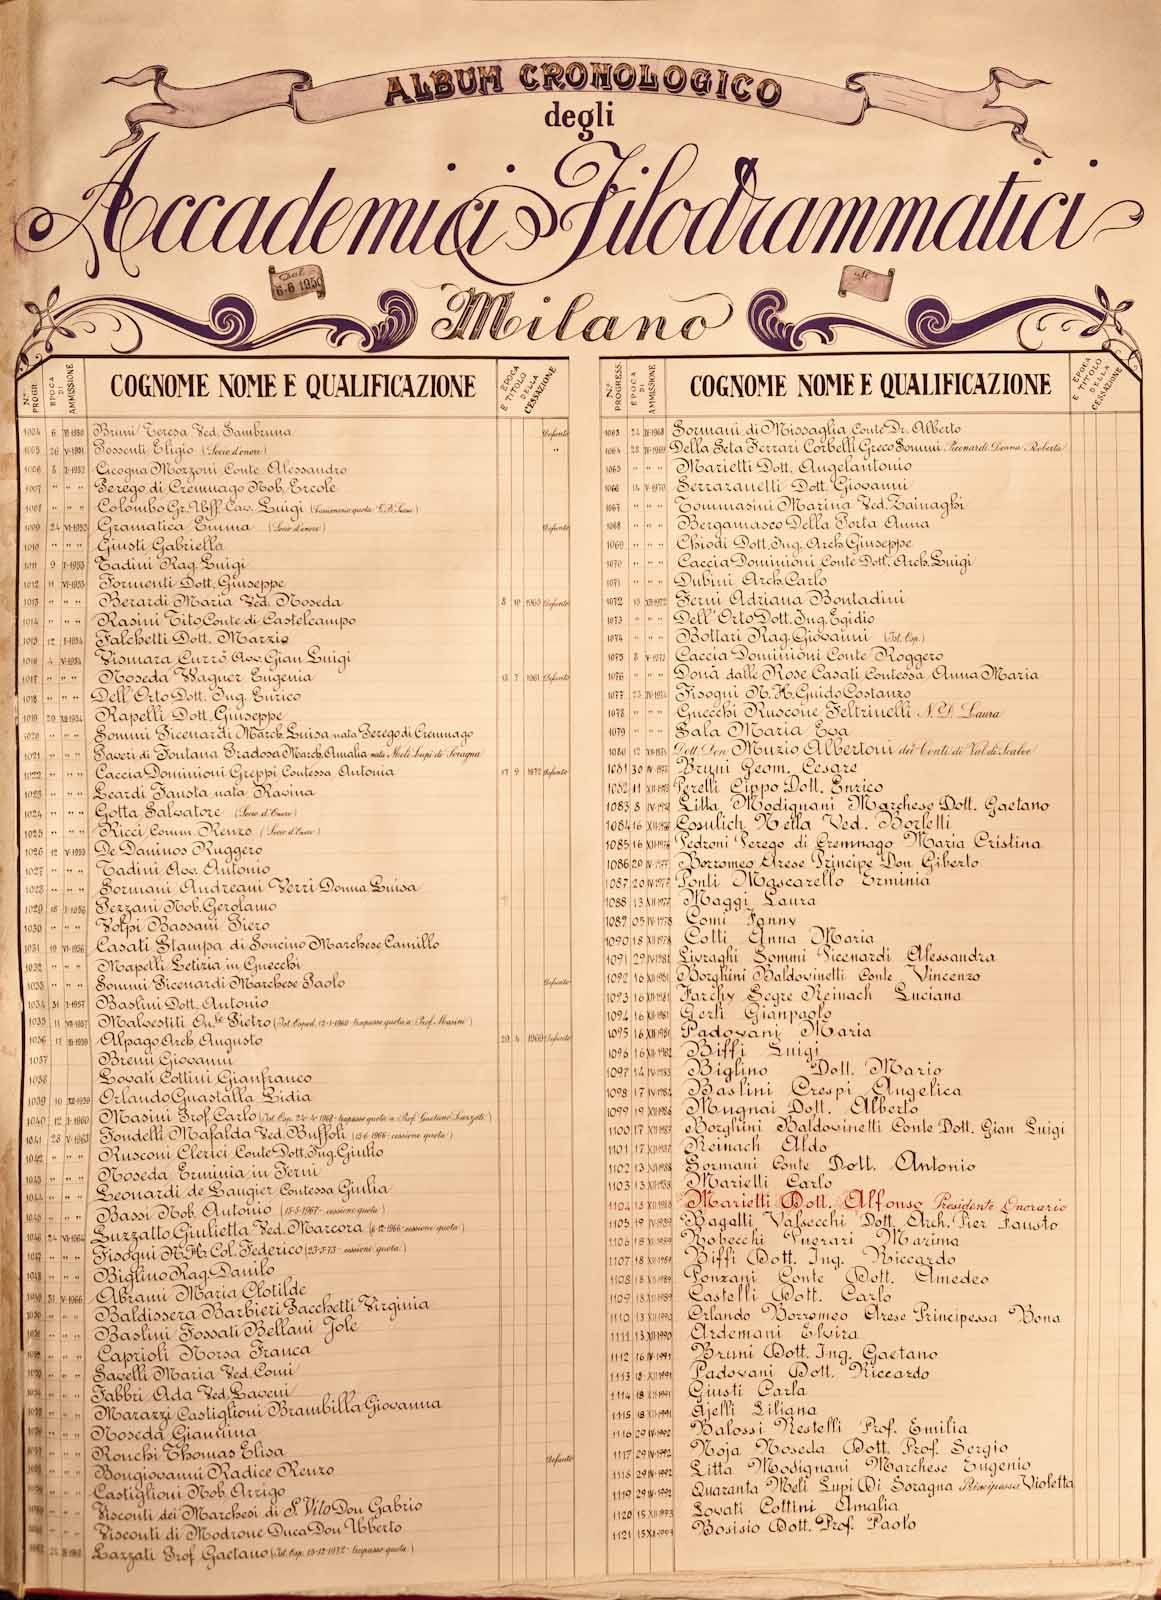 ALBUM CRONOLOGICO
degli
Accademici Filodrammatici
Dal 6-6 1950
al
Milano
Nº PROGR. EPOCA DI AMMISSIONE COGNOME NOME E QUALIFICAZIONE EPOCA E TITOLO DELLA CESSAZIONE
1004 6 Bruni Teresa Ved. Sambruna Defunto
1005 26 V-1951 Possenti Eligio (Socio d'onore) "
1006 8 I-1952 Cicogna Mozzoni Conte Alessandro
1007 " " " Perego di Cremnago Nob. Ercole
1008 " " " Colombo Gr. Uff. Cav. Luigi
1009 24 VI-1952 Gramatica Emma (Socio d'onore) Defunto
1010 " " " Giusti Gabriella
1011 9 I-1953 Tadini Rag. Luigi
1012 11 VI-1953 Formenti Dott. Giuseppe
1013 " " " Berardi Maria Ved. Noseda 8 10 1965 Defunto
1014 " " " Rasini Tito, Conte di Castelcampo
1015 12 I-1954 Falchetti Dott. Marzio
1016 4 V-1954 Vismara Currò Avv. Gian Luigi
1017 " " " Noseda Wagner Eugenia 13 7 1961 Defunto
1018 " " " Dell'Orto Dott. Ing. Enrico
1019 29 XII-1954 Rapelli Dott. Giuseppe
1020 " " " Sommi Picenardi March. Luisa nata Perego di Cremnago
1021 " " " Paveri di Fontana Pradosa March. Amalia nata Meli Lupi di Soragna
1022 " " " Caccia Dominioni Greppi Contessa Antonia 17 9 1972 Defunto
1023 " " " Leardi Fausta nata Ravina
1024 " " " Gotta Salvatore (Socio d'Onore)
1025 " " " Ricci Comm. Renzo (Socio d'Onore)
1026 12 V-1955 De Daninos Ruggero
1027 " " " Tadini Avv. Antonio
1028 " " " Sormani Andreani Verri Donna Luisa
1029 18 I-1956 Pezzani Nob. Gerolamo
1030 " " " Volpi Bassani Piero
1031 19 VI-1956 Casati Stampa di Soncino Marchese Camillo
1032 " " " Mapelli Letizia in Guecchi
1033 " " " Sommi Picenardi Marchese Paolo Defunto
1034 31 I-1957 Baslini Dott. Antonio
1035 11 VI-1957 Malvestiti On.le Pietro (Tit. Osped. 12-1-1960 - trapasso quota a Prof. Masini)
1036 11 III-1959 Alpago Arch. Augusto 29 4 1969 Defunto
1037 Brenu Giovanni
1038 Lovati Cottini Gianfranco
1039 10 XII-1959 Orlando Guastalla Lidia
1040 12 I-1960 Masini Prof. Carlo
1041 28 V-1963 Fondelli Mafalda Ved. Buffoli (13-6-1966 - cessione quota)
1042 " " " Rusconi Clerici Conte Dott. Ing. Giulio
1043 " " " Noseda Erminia in Ferni
1044 " " " Leonardi de Laugier Contessa Giulia
1045 " " " Bassi Nob. Antonio (15-5-1967 - cessione quota)
1046 24 VI-1964 Luzzatto Giulietta Ved. Marcora (6-12-1966 - cessione quota)
1047 " " " Fisogni N.H. Col. Federico (23-5-73 - cessione quota)
1048 " " " Biglino Rag. Danilo
1049 31 V-1966 Abrami Maria Clotilde
1050 " " " Baldissera Barbieri Pacchetti Virginia
1051 " " " Baslini Fossati Bellani Jole
1052 " " " Caprioli Norsa Franca
1053 " " " Savelli Maria Ved. Comi
1054 " " " Fabbri Ada Ved. Laveni
1055 " " " Marazzi Castiglioni Brambilla Giovanna
1056 " " " Noseda Giannina
1057 " " " Ronchi Thomas Elisa Defunto
1058 " " " Bongiovanni Radice Renzo
1059 " " " Castiglioni Nob. Arrigo
1060 " " " Visconti dei Marchesi di S. Vito Don Gabrio
1061 " " " Visconti di Modrone Duca Don Uberto
1062 Lazzati Prof. Gaetano (Tit. Osp. 13-12-1972 - trapasso quota)
Nº PROGRESS. EPOCA DI AMMISSIONE COGNOME NOME E QUALIFICAZIONE EPOCA E TITOLO DELLA CESSAZIONE
1063 24 IV-1968 Sormani di Missaglia Conte Dr. Alberto
1064 28 IV-1969 Della Seta Ferrari Corbelli Greco Sommi Picenardi Donna Roberta
1065 " " " Marietti Dott. Angelantonio
1066 14 V-1970 Serrazanetti Dott. Giovanni
1067 " " " Tommasini Marina Ved. Zainaghi
1068 " " " Bergamasco Della Porta Anna
1069 " " " Chiodi Dott. Ing. Arch. Giuseppe
1070 " " " Caccia Dominioni Conte Dott. Arch. Luigi
1071 " " " Dubini Arch. Carlo
1072 13 XII-1972 Ferni Adriana Bontadini
1073 " " " Dell'Orto Dott. Ing. Egidio
1074 " " " Bottari Rag. Giovanni (Tit. Osp.)
1075 8 V-1973 Caccia Dominioni Conte Roggero
1076 " " " Donà dalle Rose Casati Contessa Anna Maria
1077 23 IV-1974 Fisogni N.H. Guido Costanzo
1078 " " " Guecchi Ruscone Feltrinelli N.D. Laura
1079 " " " Sala Maria Eva
1080 12 XII-1974 Dott. Don Muzio Albertoni dei Conti di Val di Scalve
1081 30 IV-1975 Bruni Geom. Cesare
1082 11 XII-1975 Perelli Cippo Dott. Enrico
1083 8 IV-1976 Litta Modignani Marchese Dott. Gaetano
1084 16 XII-1976 Cosulich Netta Ved. Borletti
1085 16 XII-1976 Pedroni Perego di Cremnago Maria Cristina
1086 20 IV-1977 Borromeo Arese Principe Don Giberto
1087 20 IV-1977 Ponti Mascarello Erminia
1088 13 XII-1977 Maggi Laura
1089 05 IV-1978 Comi Fanny
1090 18 XII-1978 Cotti Anna Maria
1091 29 IV-1981 Livraghi Sommi Picenardi Alessandra
1092 16 XII-1981 Borghini Baldovinetti Conte Vincenzo
1093 16 XII-1981 Farchy Segre Reinach Luciana
1094 16 XII-1981 Gerli Gianpaolo
1095 16 XII-1981 Padovani Maria
1096 16 XII-1982 Biffi Luigi
1097 14 XII-1983 Biglino Dott. Mario
1098 17 IV-1985 Baslini Crespi Angelica
1099 19 XII-1986 Mugnai Dott. Alberto
1100 17 XII-1987 Borghini Baldovinetti Conte Dott. Gian Luigi
1101 17 XII-1987 Reinach Aldo
1102 13 XII-1988 Sormani Conte Dott. Antonio
1103 13 XII-1988 Marielli Carlo
1104 13 XII-1988 Marietti Dott. Alfonso Presidente Onorario
1105 19 IV-1989 Bagatti Valsecchi Dott. Arch. Pier Fausto
1106 18 XII-1989 Robecchi Puerari Marina
1107 18 XII-1989 Biffi Dott. Ing. Riccardo
1108 18 XII-1989 Ponzani Conte Dott. Amedeo
1109 18 XII-1989 Castolli Dott. Carlo
1110 13 XII-1990 Orlando Borromeo Arese Principessa Bona
1111 13 XII-1990 Ardemani Elvira
1112 16 IV-1991 Bruni Dott. Ing. Gaetano
1113 18 XII-1991 Padovani Dott. Riccardo
1114 18 XII-1991 Giusti Carla
1115 18 XII-1991 Ajelli Liliana
1116 29 IV-1992 Balossi Restelli Prof. Emilia
1117 29 IV-1992 Noja Noseda Dott. Prof. Sergio
1118 29 IV-1992 Litta Modignani Marchese Eugenio
1119 29 IV-1992 Quaranta Meli Lupi Di Soragna Principessa Violetta
1120 15 XII-1993 Lovati Cottini Amalia
1121 15 XII-1993 Bosisio Dott. Prof. Paolo